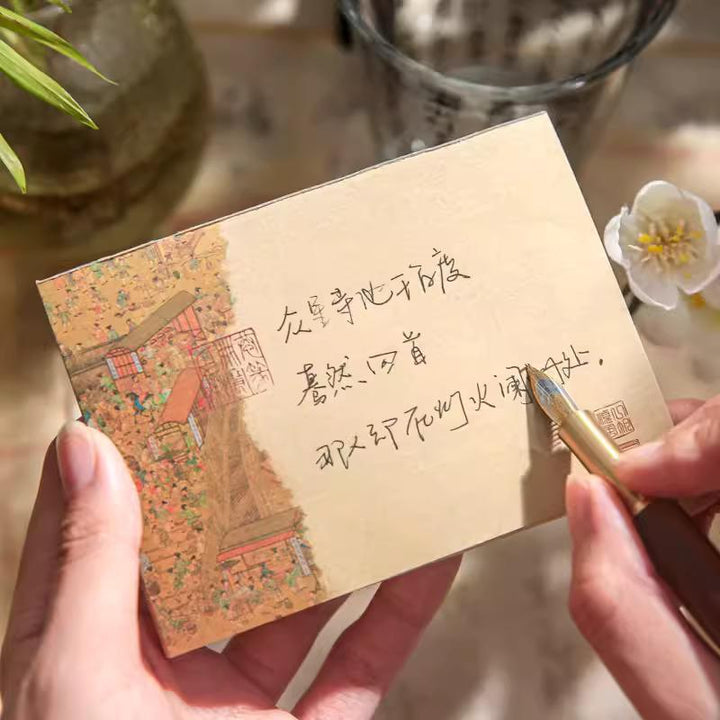 众里寻他千百度
蓦然回首
那人却在灯火阑珊处.